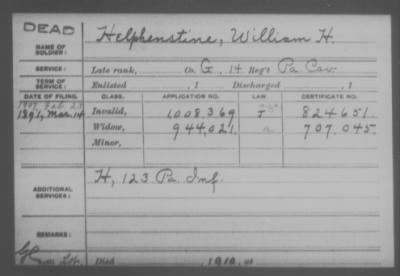 DEAD
NAME OF SOLDIER: Helphenstine, William H.
SERVICE: Late rank, Co. G, 14 Reg't Pa Cav
TERM OF SERVICE: Enlisted , 1 Discharged , 1
DATE OF FILING. CLASS. APPLICATION NO. LAW. CERTIFICATE NO.
Invalid, 1008,369 824651.
1891, Mar. 14 Widow, 944,021 707.045.
Minor,
ADDITIONAL SERVICES: H, 123. Pa. Inf.
REMARKS:
Died , 1910, at